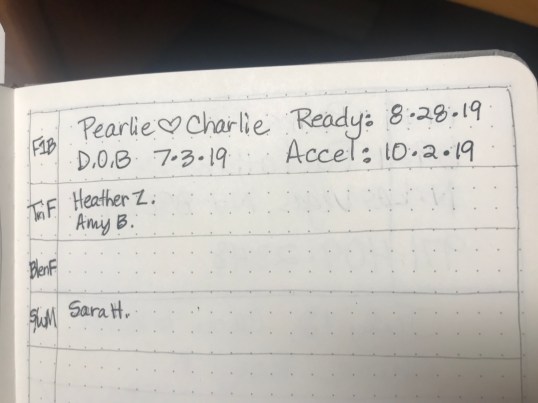 F1B Pearlie ♡ Charlie Ready: 8·28·19
D.O.B 7·3·19 Accel: 10·2·19
TriF Heather Z.
Amy B.
BlenF
S/WM Sara H.